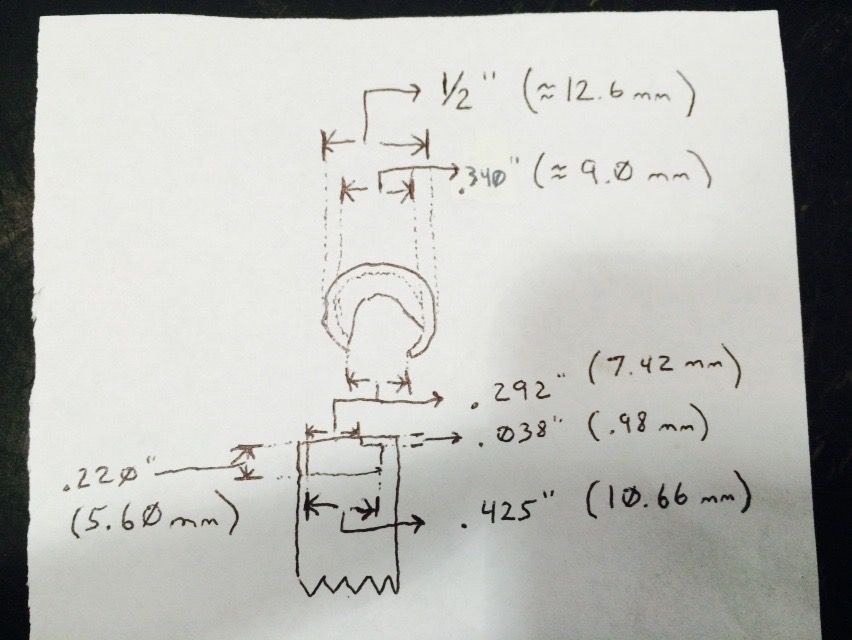 1/2" (≈12.6 mm)
.34Ø" (≈ 9.Ø mm)
.292" (7.42 mm)
.Ø38" (.98 mm)
.22Ø"
(5.6Ø mm)
.425" (1Ø.66 mm)